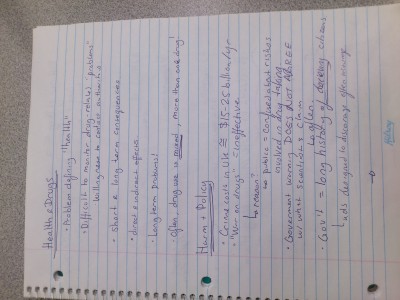 Health & Drugs
• Problem defining "health"
• Difficult to monitor drug-related "problems"
willingness to contact authorities
• Short & long term consequences
• direct & indirect effects
• Long term problems!
• Often, drug use is mixed, more than one drug!
Harm + Policy
• Crime costs in UK ≅ $15-25 billion/yr
• "War on drugs" = ineffective
↳ reason =
↳ public = confused about riskes
involved in drug taking
• Government warning DOES NOT AGREE
w/ what scientists claim
↳ often
• Gov't = long history of deceiving citizens
↳ ads designed to discourage often